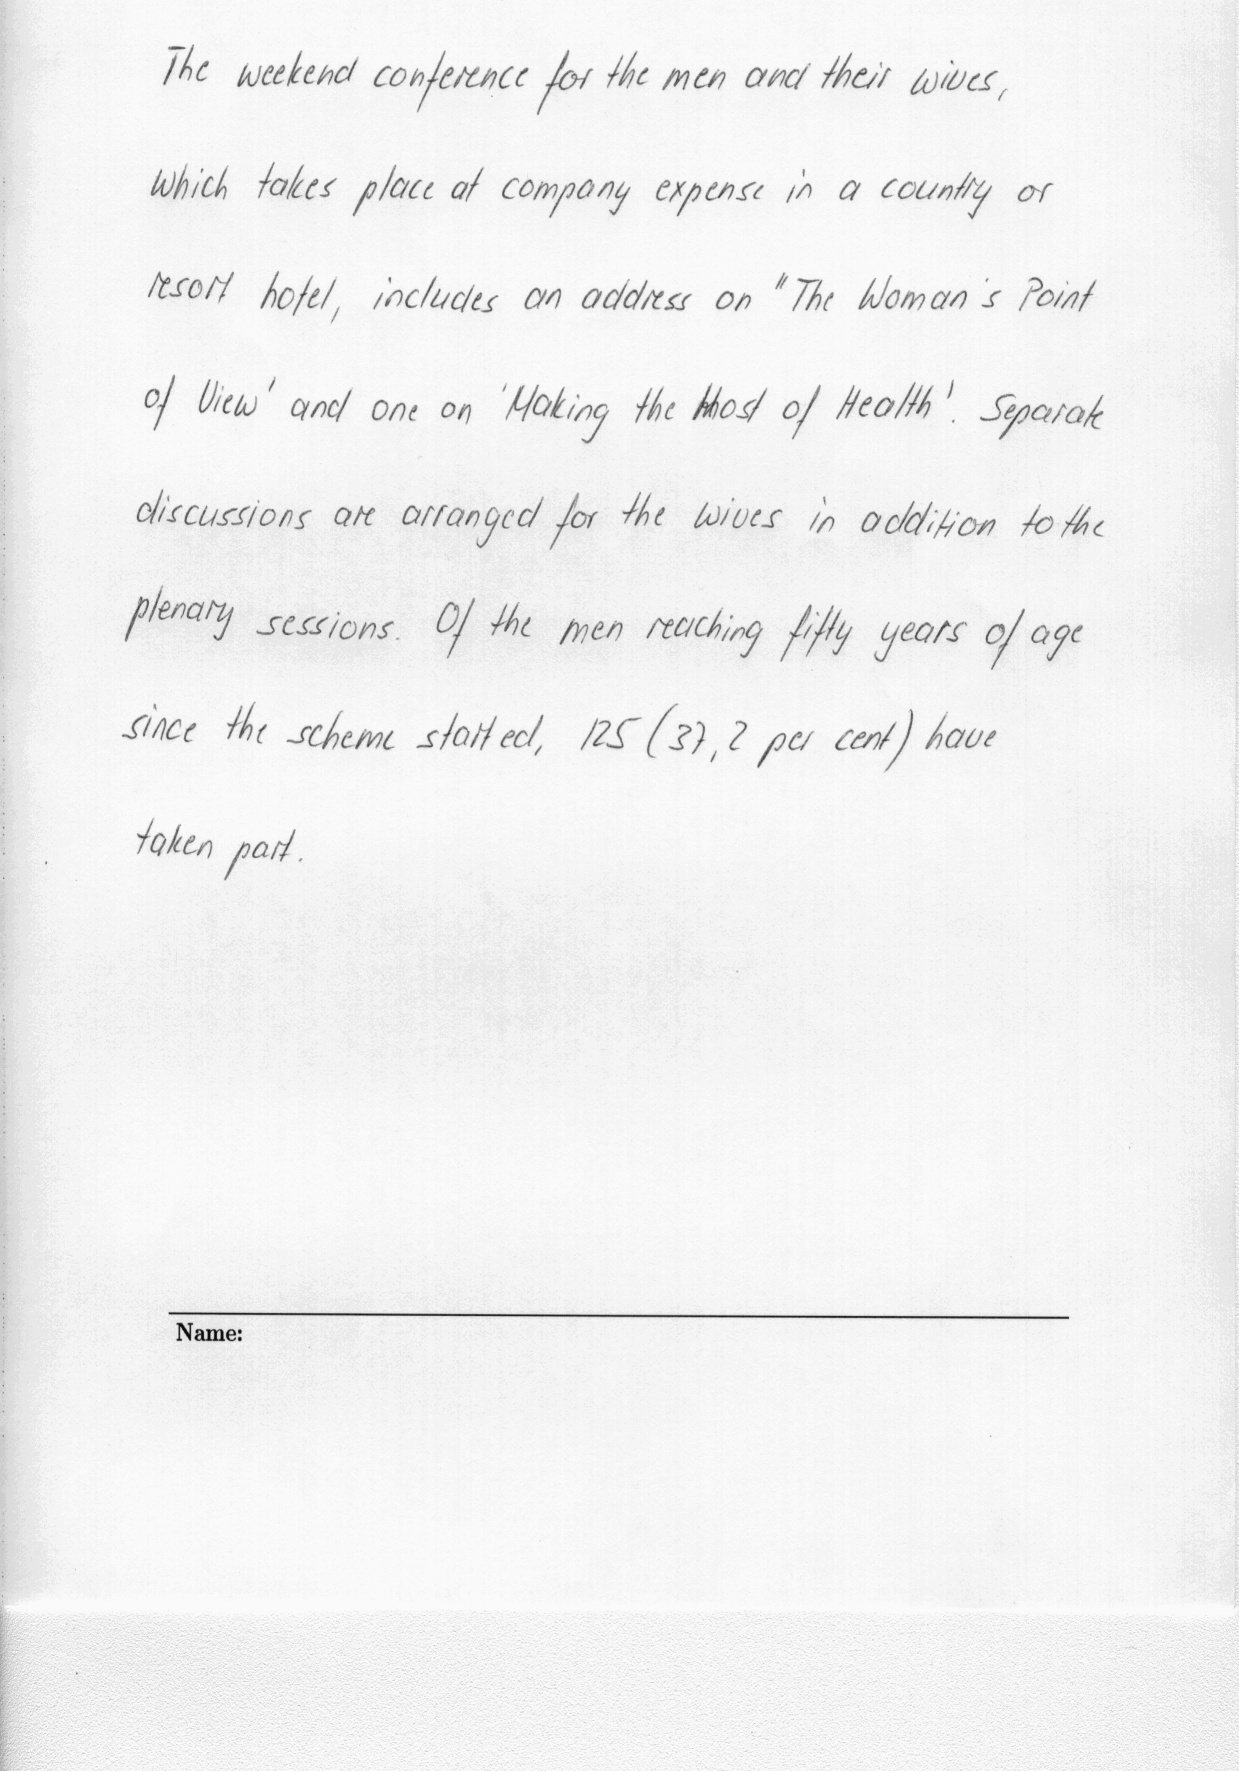 The weekend conference for the men and their wives,
which takes place at company expense in a country or
resort hotel, includes an address on "The Woman's Point
of View' and one on 'Making the Most of Health'. Separate
discussions are arranged for the wives in addition to the
plenary sessions. Of the men reaching fifty years of age
since the scheme started, 125 (37,2 per cent) have
taken part.
Name: